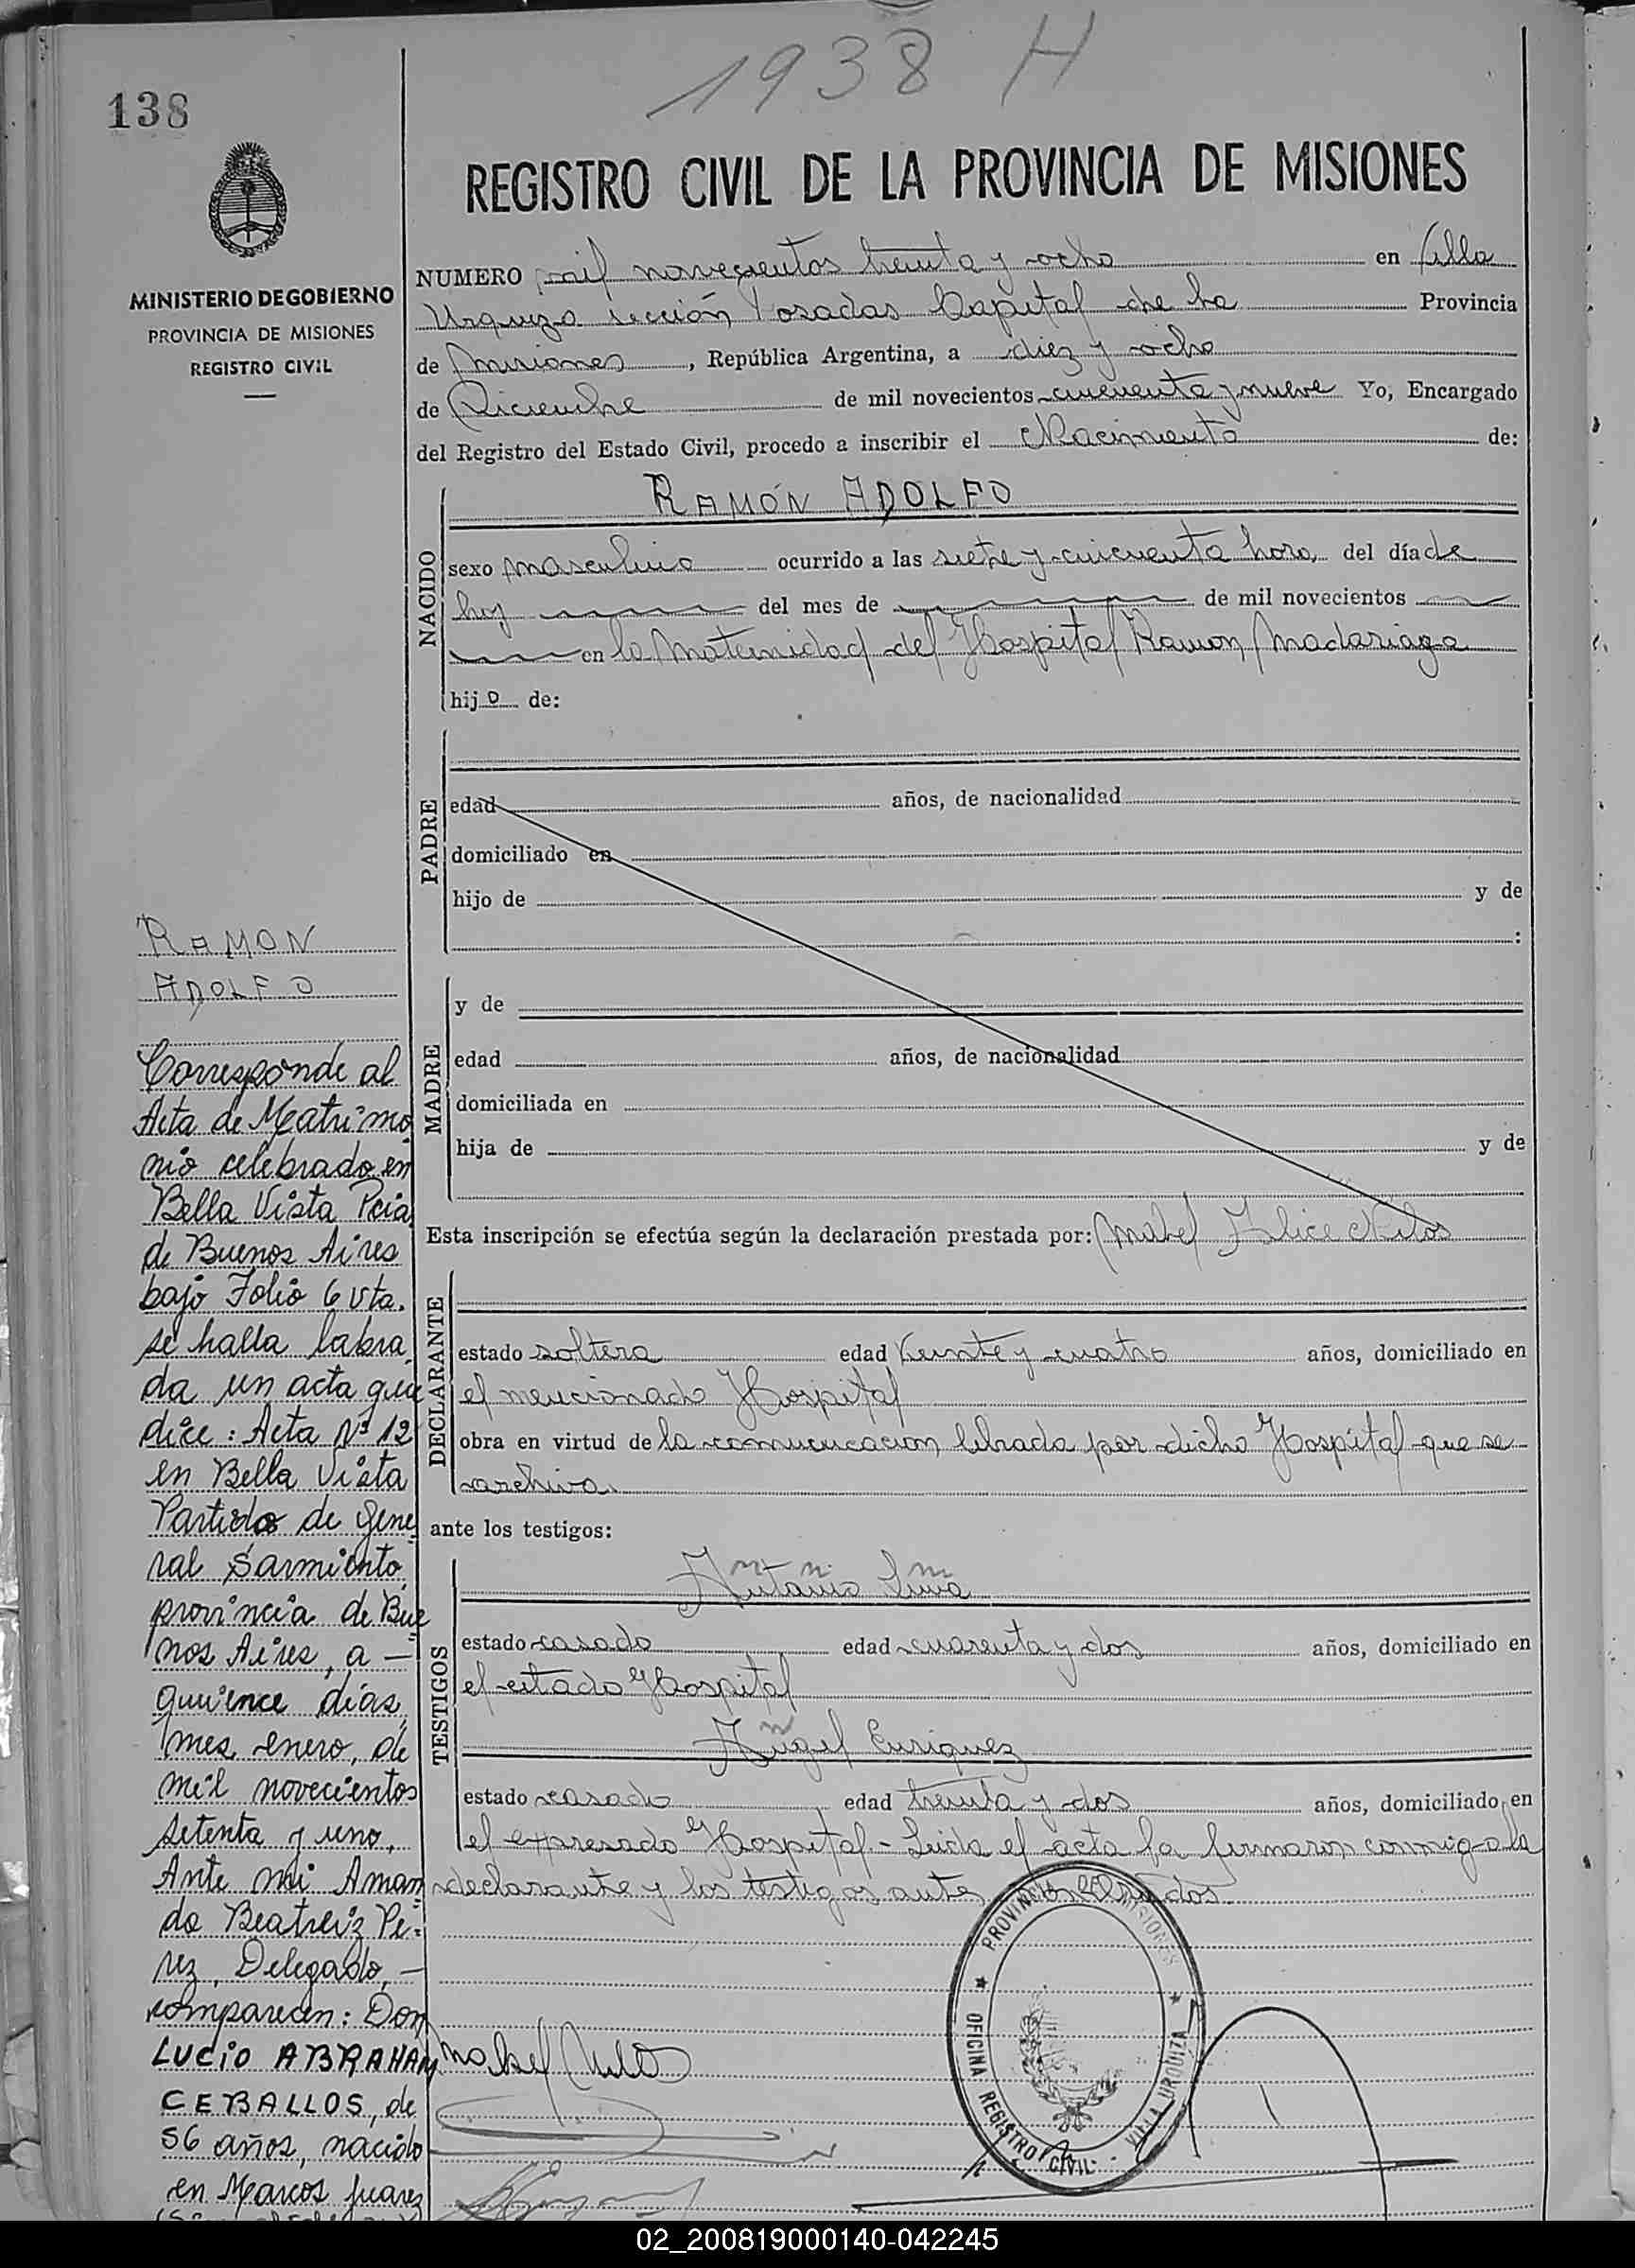 1938 H
138
REGISTRO CIVIL DE LA PROVINCIA DE MISIONES
MINISTERIO DE GOBIERNO
PROVINCIA DE MISIONES
REGISTRO CIVIL
NUMERO mil novecientos treinta y ocho en Villa
Urquiza sección Posadas Capital de la Provincia
de Misiones, República Argentina, a diez y ocho
de Diciembre de mil novecientos cincuenta y nueve Yo, Encargado
del Registro del Estado Civil, procedo a inscribir el Nacimiento de:
NACIDO
RAMÓN ADOLFO
sexo masculino ocurrido a las siete y cincuenta hora, del día de
hoy del mes de de mil novecientos
en la Maternidad del Hospital Ramon Madariaga
hijo de:
PADRE
edad años, de nacionalidad
domiciliado en
hijo de y de
:
MADRE
y de
edad años, de nacionalidad
domiciliada en
hija de y de
Esta inscripción se efectúa según la declaración prestada por: Mabel Alice
DECLARANTE
estado soltera edad Veinte y cuatro años, domiciliado en
el mencionado Hospital
obra en virtud de la comunicacion librada por dicho Hospital que se
archiva.
ante los testigos:
TESTIGOS
Antonio
estado casado edad cuarenta y dos años, domiciliado en
el citado Hospital
Angel Enriquez
estado casado edad treinta y dos años, domiciliado en
el expresado Hospital.- Leida el acta la firmaron conmigo la
declarante y los testigos antes
RAMON
ADOLFO
Corresponde al
Acta de Matrimo
nio celebrado en
Bella Vista Pcia
de Buenos Aires
bajo Folio 6 vta.
se halla labra
da un acta que
dice: Acta Nº 12
en Bella Vista
Partido de Gene
ral Sarmiento,
provincia de Bue
nos Aires, a —
quince días,
mes enero, de
mil novecientos
setenta y uno,
Ante mi Aman
da Beatriz Pé-
rez, Delegado, —
comparecen: Don
LUCIO ABRAHAM
CEBALLOS, de
56 años, nacido
en Marcos Juarez
PROVINCIA DE MISIONES
OFICINA REGISTRO CIVIL
VILLA URQUIZA
02_200819000140-042245